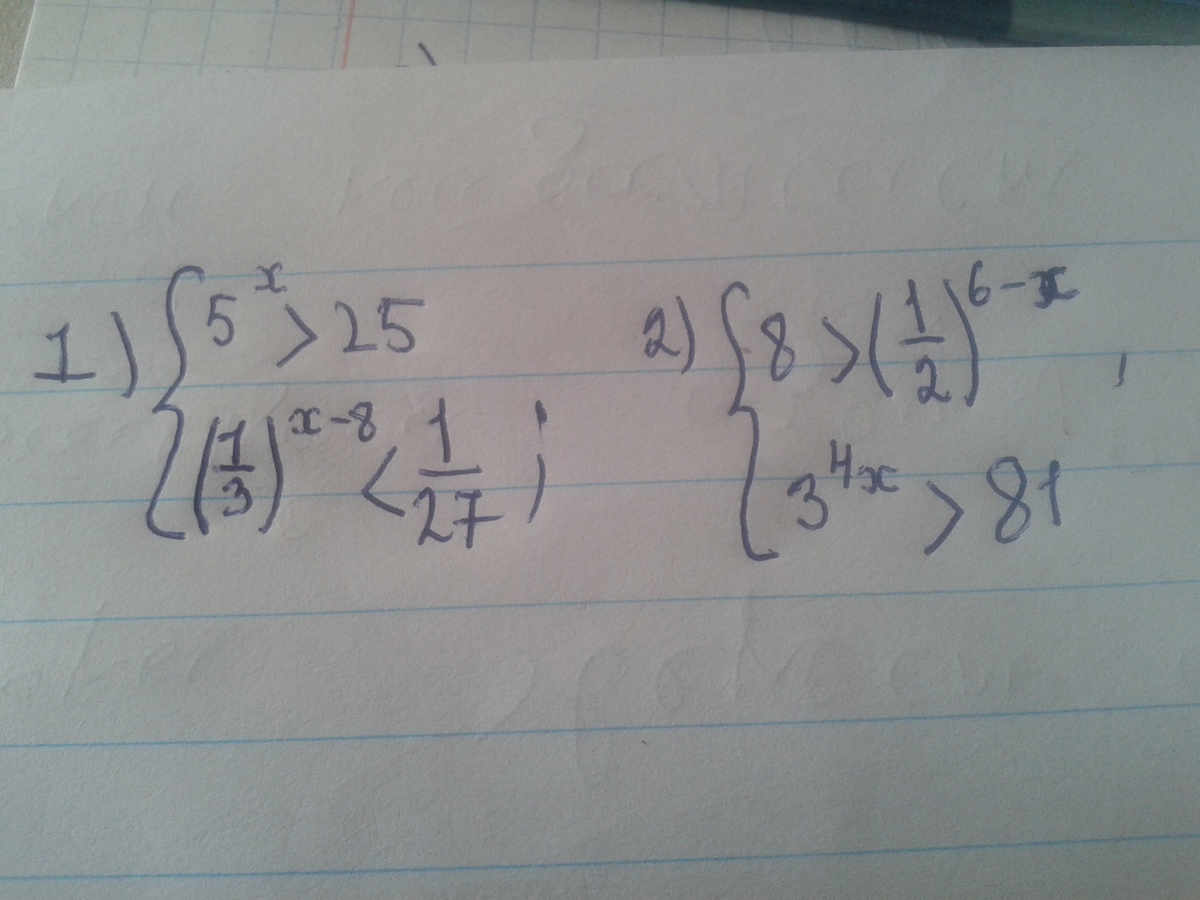 1) { 5^x > 25
(1/3)^(x-8) < 1/27 ;
2) { 8 > (1/2)^(6-x) ,
3^(4x) > 81